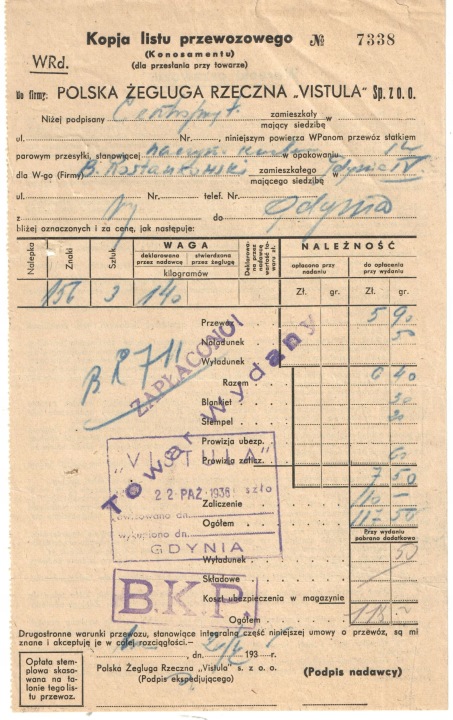 Kopja listu przewozowego № 7338
(Konosamentu)
WRd. (dla przesłania przy towarze)
Do firmy: POLSKA ŻEGLUGA RZECZNA „VISTULA” Sp. z o. o.
Niżej podpisany zamieszkały w
mający siedzibę
ul. Nr. , niniejszym powierza WPanom przewóz statkiem
parowym przesyłki, stanowiącej w opakowaniu
dla W-go (Firmy) B. zamieszkałego w Gdynia
mającego siedzibę
ul. Nr. telef. Nr.
z do Gdynia
bliżej oznaczonych i za cenę, jak następuje:
Nalepka Znaki Sztuk WAGA Deklarowana przez nadawcę wartość towaru zł. NALEŻNOŚĆ
deklarowana przez nadawcę stwierdzona przez żeglugę opłacona przy nadaniu do opłacenia przy wydaniu
kilogramów Zł. gr. Zł. gr.
156 3 140
Przewóz 5 90
Naładunek 50
Wyładunek
Razem 6 40
Blankiet
Stempel 20
Prowizja ubezp.
Prowizja zalicz. 60
7 50
Zaliczenie 110 -
Ogółem 117 50
Przy wydaniu pobrano dodatkowo
Wyładunek 50
Składowe
Koszt ubezpieczenia w magazynie
Ogółem 118 -
BR 711
ZAPŁACONO!
Towar wydany
„VISTULA”
22 PAŹ. 1936
szło
awizowano dn.
wykupiono dn.
GDYNIA
B.K.P.
Drugostronne warunki przewozu, stanowiące integralną część niniejszej umowy o przewóz, są mi
znane i akceptuję je w całej rozciągłości.
, dn. 193 r.
Opłata stemplowa skasowana na talonie tego listu przewoz.
Polska Żegluga Rzeczna „Vistula” s. z o. o.
(Podpis ekspedjującego)
(Podpis nadawcy)